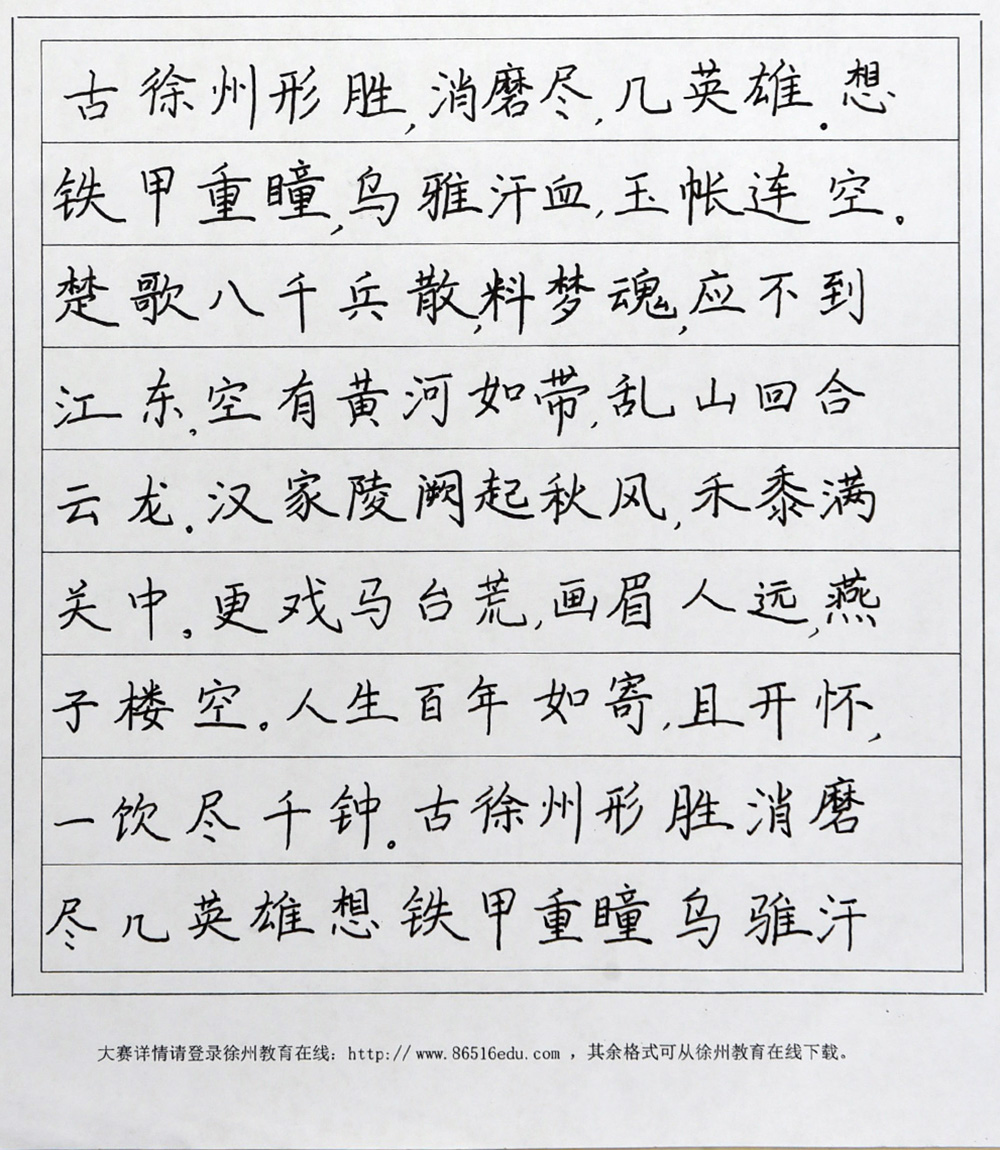 古徐州形胜,消磨尽,几英雄。想
铁甲重瞳,乌雅汗血,玉帐连空。
楚歌八千兵散,料梦魂,应不到
江东,空有黄河如带,乱山回合
云龙。汉家陵阙起秋风,禾黍满
关中。更戏马台荒,画眉人远,燕
子楼空。人生百年如寄,且开怀,
一饮尽千钟。古徐州形胜消磨
尽几英雄想铁甲重瞳乌骓汗
大赛详情请登录徐州教育在线:http://www.86516edu.com ,其余格式可从徐州教育在线下载。